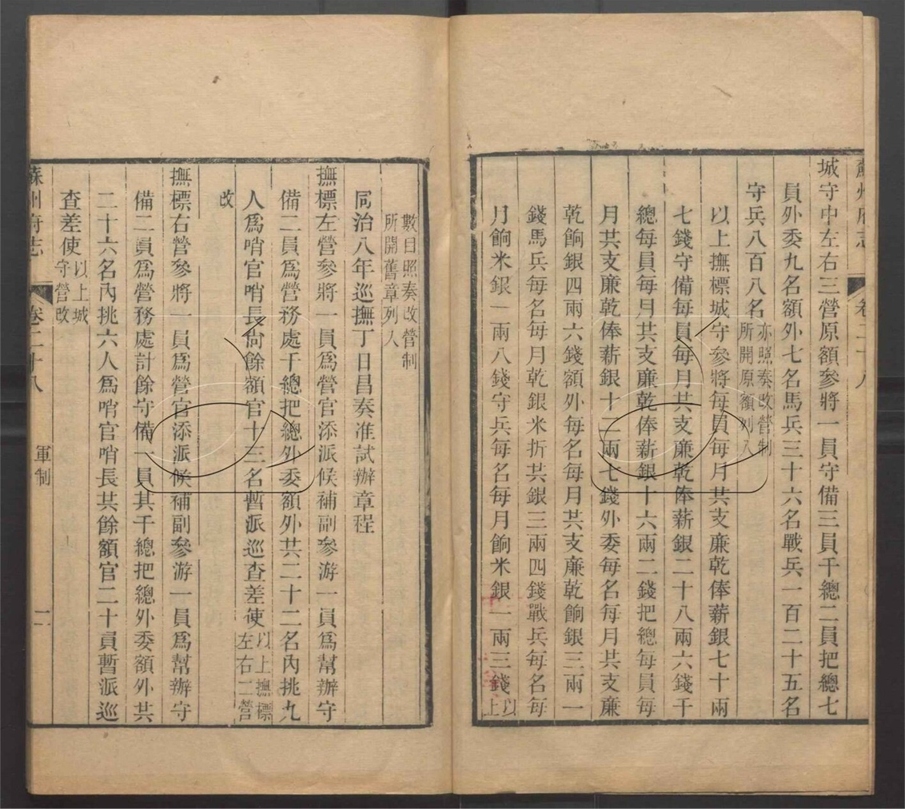 蘇州府志 卷二十八
城守中左右三營原額參將一員守備三員千總二員把總七
員外委九名額外七名馬兵三十六名戰兵一百二十五名
守兵八百八名亦照奏改營制
所開原額列入
以上撫標城守參將每員每月共支廉乾俸薪銀七十兩
七錢守備每員每月共支廉乾俸薪銀二十八兩六錢千
總每員每月共支廉乾俸薪銀十六兩二錢把總每員每
月共支廉乾俸薪銀十二兩七錢外委每名每月共支廉
乾餉銀四兩六錢額外每名每月共支廉乾餉銀三兩一
錢馬兵每名每月乾銀米折共銀三兩四錢戰兵每名每
月餉米銀一兩八錢守兵每名每月餉米銀一兩三錢以
上
數目照奏改營制
所開舊章列入
同治八年巡撫丁日昌奏准試辦章程
撫標左營參將一員為營官添派候補副參游一員為幫辦守
備二員為營務處千總把總外委額外共二十二名內挑九
人為哨官哨長尚餘額官十三名暫派巡查差使以上撫標
左右二營
改
撫標右營參將一員為營官添派候補副參游一員為幫辦守
備二員為營務處計餘守備一員其千總把總外委額外共
二十六名內挑六人為哨官哨長共餘額官二十員暫派巡
查差使以上城
守營改
蘇州府志 卷二十八 軍制 二